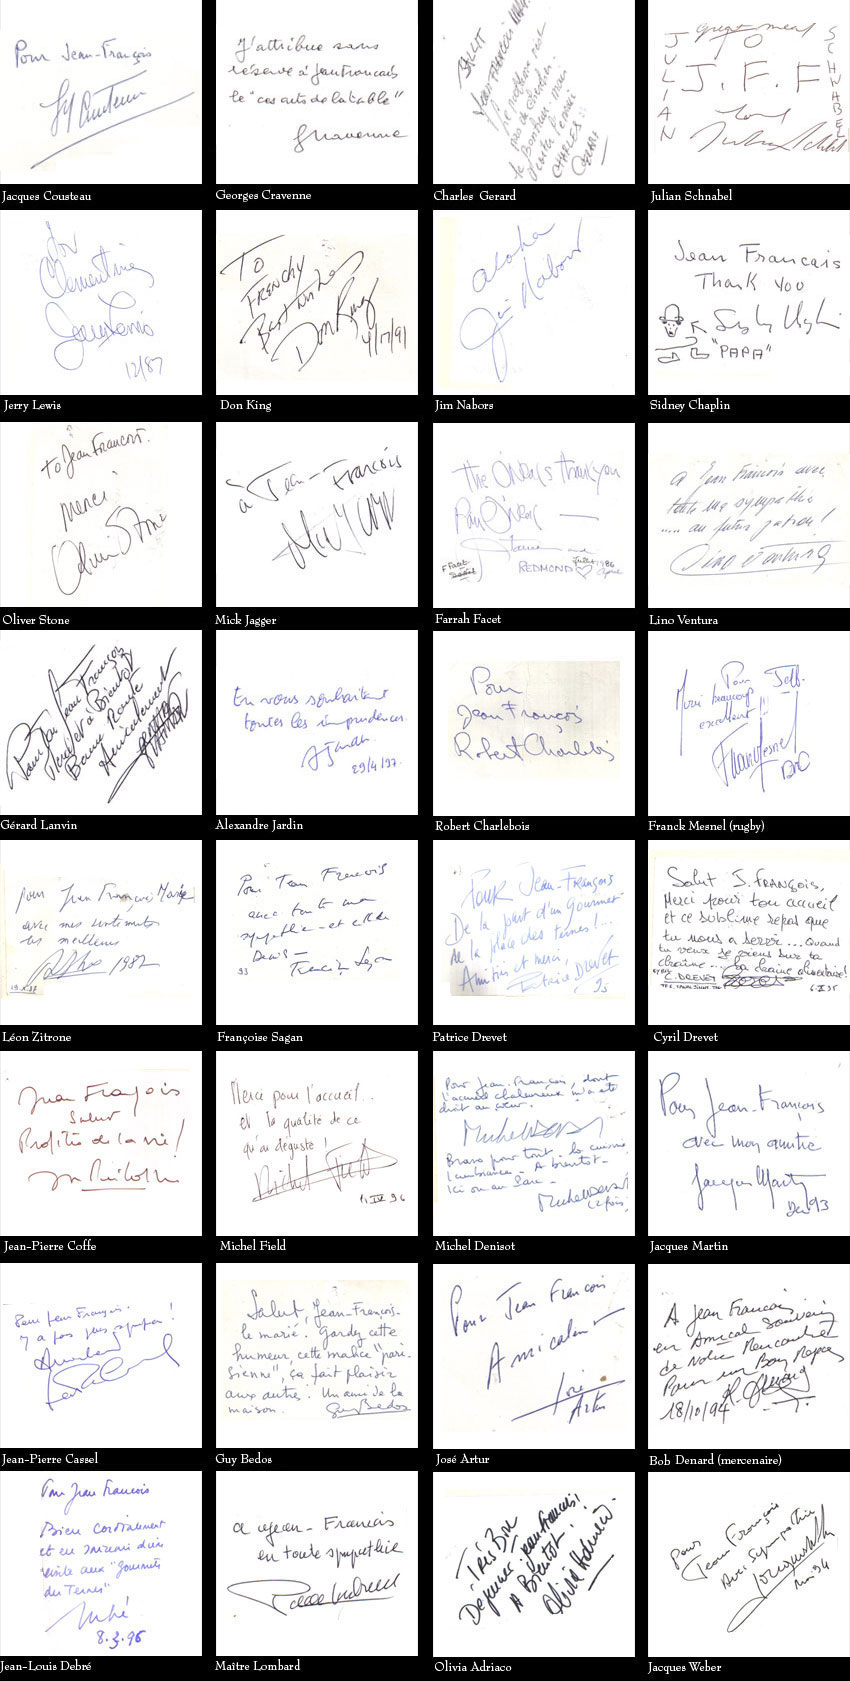 Pour Jean-François
Jacques Cousteau
J'attribue sans
réserve à Jean Francais
le "cas arts de la table"
Georges Cravenne
CHARLES
GERARD
Charles Gerard
great meal
TO
J. F. F
JULIAN
SCHNABEL
love
Julian Schnabel
For
Clementine
Jerry Lewis
12/87
Jerry Lewis
TO
FRENCHY
Best wishes
Don King
4/17/91
Don King
aloha
Jim Nabors
Jim Nabors
Jean Francais
Thank you
"PAPA"
Sidney Chaplin
To Jean Francois.
Merci
Oliver Stone
Oliver Stone
à Jean-François
Mick Jagger
The O'Neals thank you
Ryan O'Neal
REDMOND
Farrah Facet
à Jean François avec
toute ma sympathie
..... au futur patron !
Lino Ventura
Lino Ventura
Pour toi Jean François
Amicalement
Gérard Lanvin
En vous souhaitant
toutes les imprudences.
AJardin
29/4/97.
Alexandre Jardin
Pour
Jean François
Robert Charlebois
Robert Charlebois
Pour Jeff.
Merci beaucoup
excellent !!!
Franck Mesnel
Franck Mesnel (rugby)
pour Jean François Marie
avec mes sentiments
les meilleurs
1987
Léon Zitrone
Pour Jean Francois
avec toute ma
sympathie - et celle de
Denis -
93 Françoise Sagan
Françoise Sagan
Pour Jean-François
De la part d'un gourmet
de la place des ternes !...
Amitiés et merci,
Patrice Drevet
95
Patrice Drevet
Salut J. FRANÇOIS,
Merci pour ton accueil
et ce sublime repas que
tu nous a servi... Quand
tu veux je viens sur ta
chaîne... la chaîne alimentaire!
C. DREVET
Cyril Drevet
Jean François
Salut
Profitez de la vie !
Jean-Pierre Coffe
Merci pour l'accueil..
et la qualité de ce
qu'ai dégusté !
Michel Field
11 IV 96
Michel Field
Pour Jean-François, dont
l'accueil chaleureux m'a été
droit au cœur.
Michel Denisot
Bravo pour tout - la cuisine
l'ambiance - A bientôt -
Ici ou au Parc -
Michel Denisot
(2 fois)
Michel Denisot
Pour Jean-François
avec mon amitié
Jacques Martin
Dec 93
Jacques Martin
Pour Jean François.
y a pas plus sympa !
Jean-Pierre Cassel
Salut, Jean-François-
le marié. Gardez cette
humeur, cette malice "pari-
sienne", ça fait plaisir
aux autres. Un ami de la
maison. Guy Bedos
Guy Bedos
Pour Jean François
Amicalement
José
Artur
José Artur
A Jean Francois
en Amical Souvenir
de Notre Rencontre
Pour un Bon Repas
18/10/94
Bob Denard (mercenaire)
Pour Jean Francois
Bien cordialement
et en souvenir d'une
visite aux "Gourmets
des Ternes"
Debré
8.3.96
Jean-Louis Debré
à Jean-Francis
en toute sympathie
Maître Lombard
TRÈS BON
Déjeuner Jean François!
A Bientôt !
Olivia Adriaco
Olivia Adriaco
Pour
Jean François
Avec Sympathie
Jacques Weber